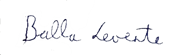 Balla Levente